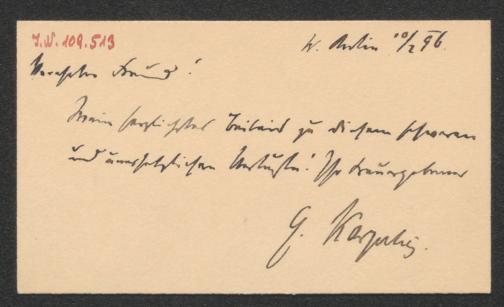 I.N. 109.513
W. Berlin 10/2 96.
Verehrter Freund!
Mein herzlichstes Beileid zu diesem schweren
und unersetzlichen Verluste! Ihr treuergebener
G. Karpeles.